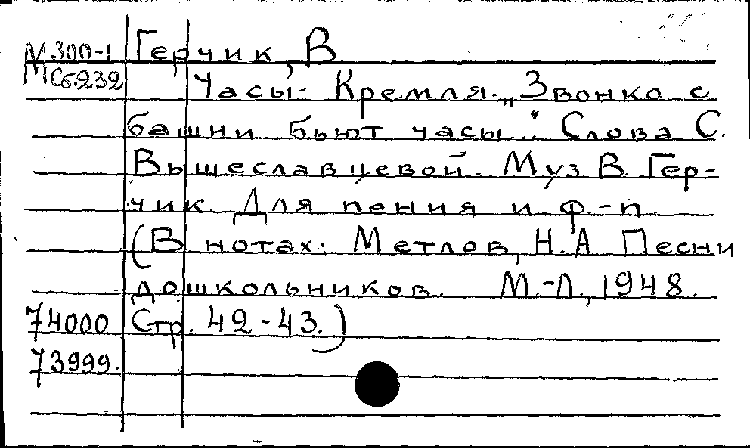 М300-1 Герчик, В
МСб232 Часы Кремля. „Звонко с
башни бьют часы“. Слова С.
Вышеславцевой. Муз В. Гер-
чик. Для пения и ф.-п
(В нотах: Метлов, Н.А Песни
дошкольников. М.-Л, 1948.
74000 Стр. 42-43.)
73999.